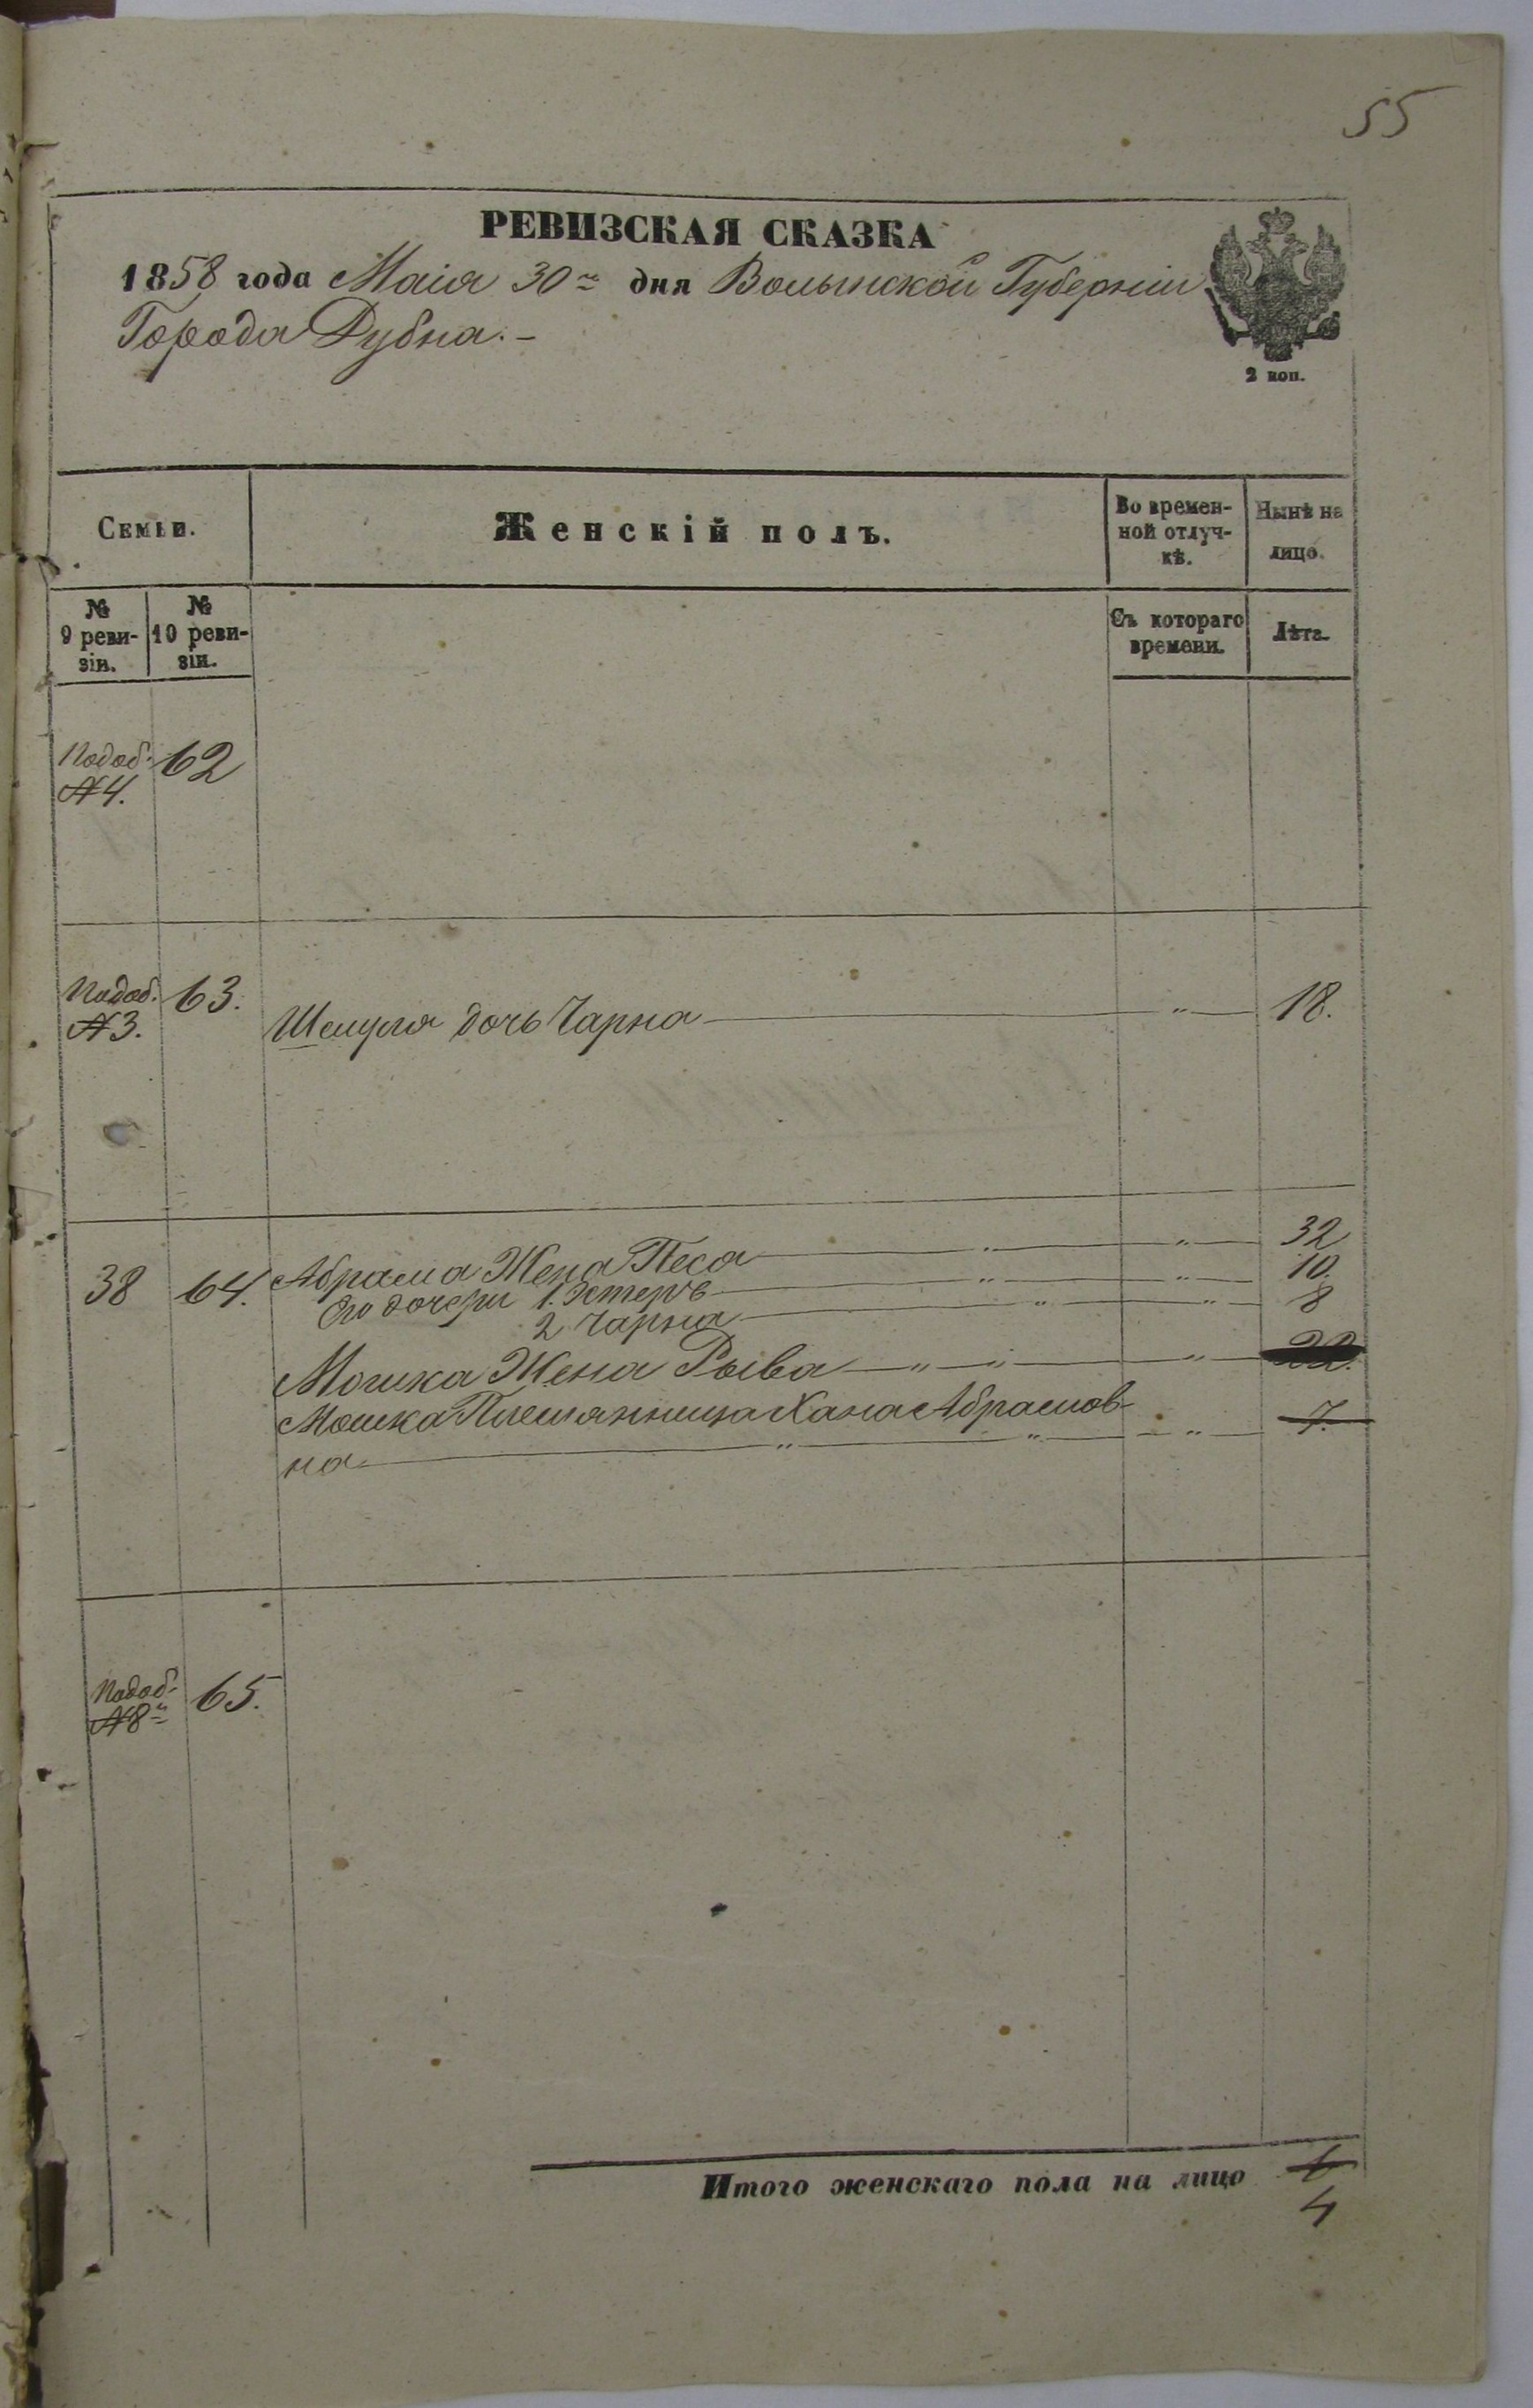 55
РЕВИЗСКАЯ СКАЗКА
1858 года Маія 30го дня Волынской Губерніи
Города Дубна.-
2 коп.
Семьи.
Женскій полъ.
Во времен-
ной отлуч-
кѣ.
Нынѣ на
лицо.
№
9 реви-
зіи.
№
10 реви-
зіи.
Съ котораго
времени.
Лѣта.
Подоб. 62
№4.
Подоб. 63.
№3.
Шмуля дочь Чарна — " — 18.
38 64. Абрама Жена Песа — " — " — 32
Его дочери 1. Эстеръ — " — " — 10.
2 Чарна — " — " — 8
Мошка Жена Рыва — " — " — " — 22.
Мошка Племянница Хана Абрамов-
на — " — " — " — 7.
Подоб. 65.
№8й
Итого женскаго пола на лицо 6
4